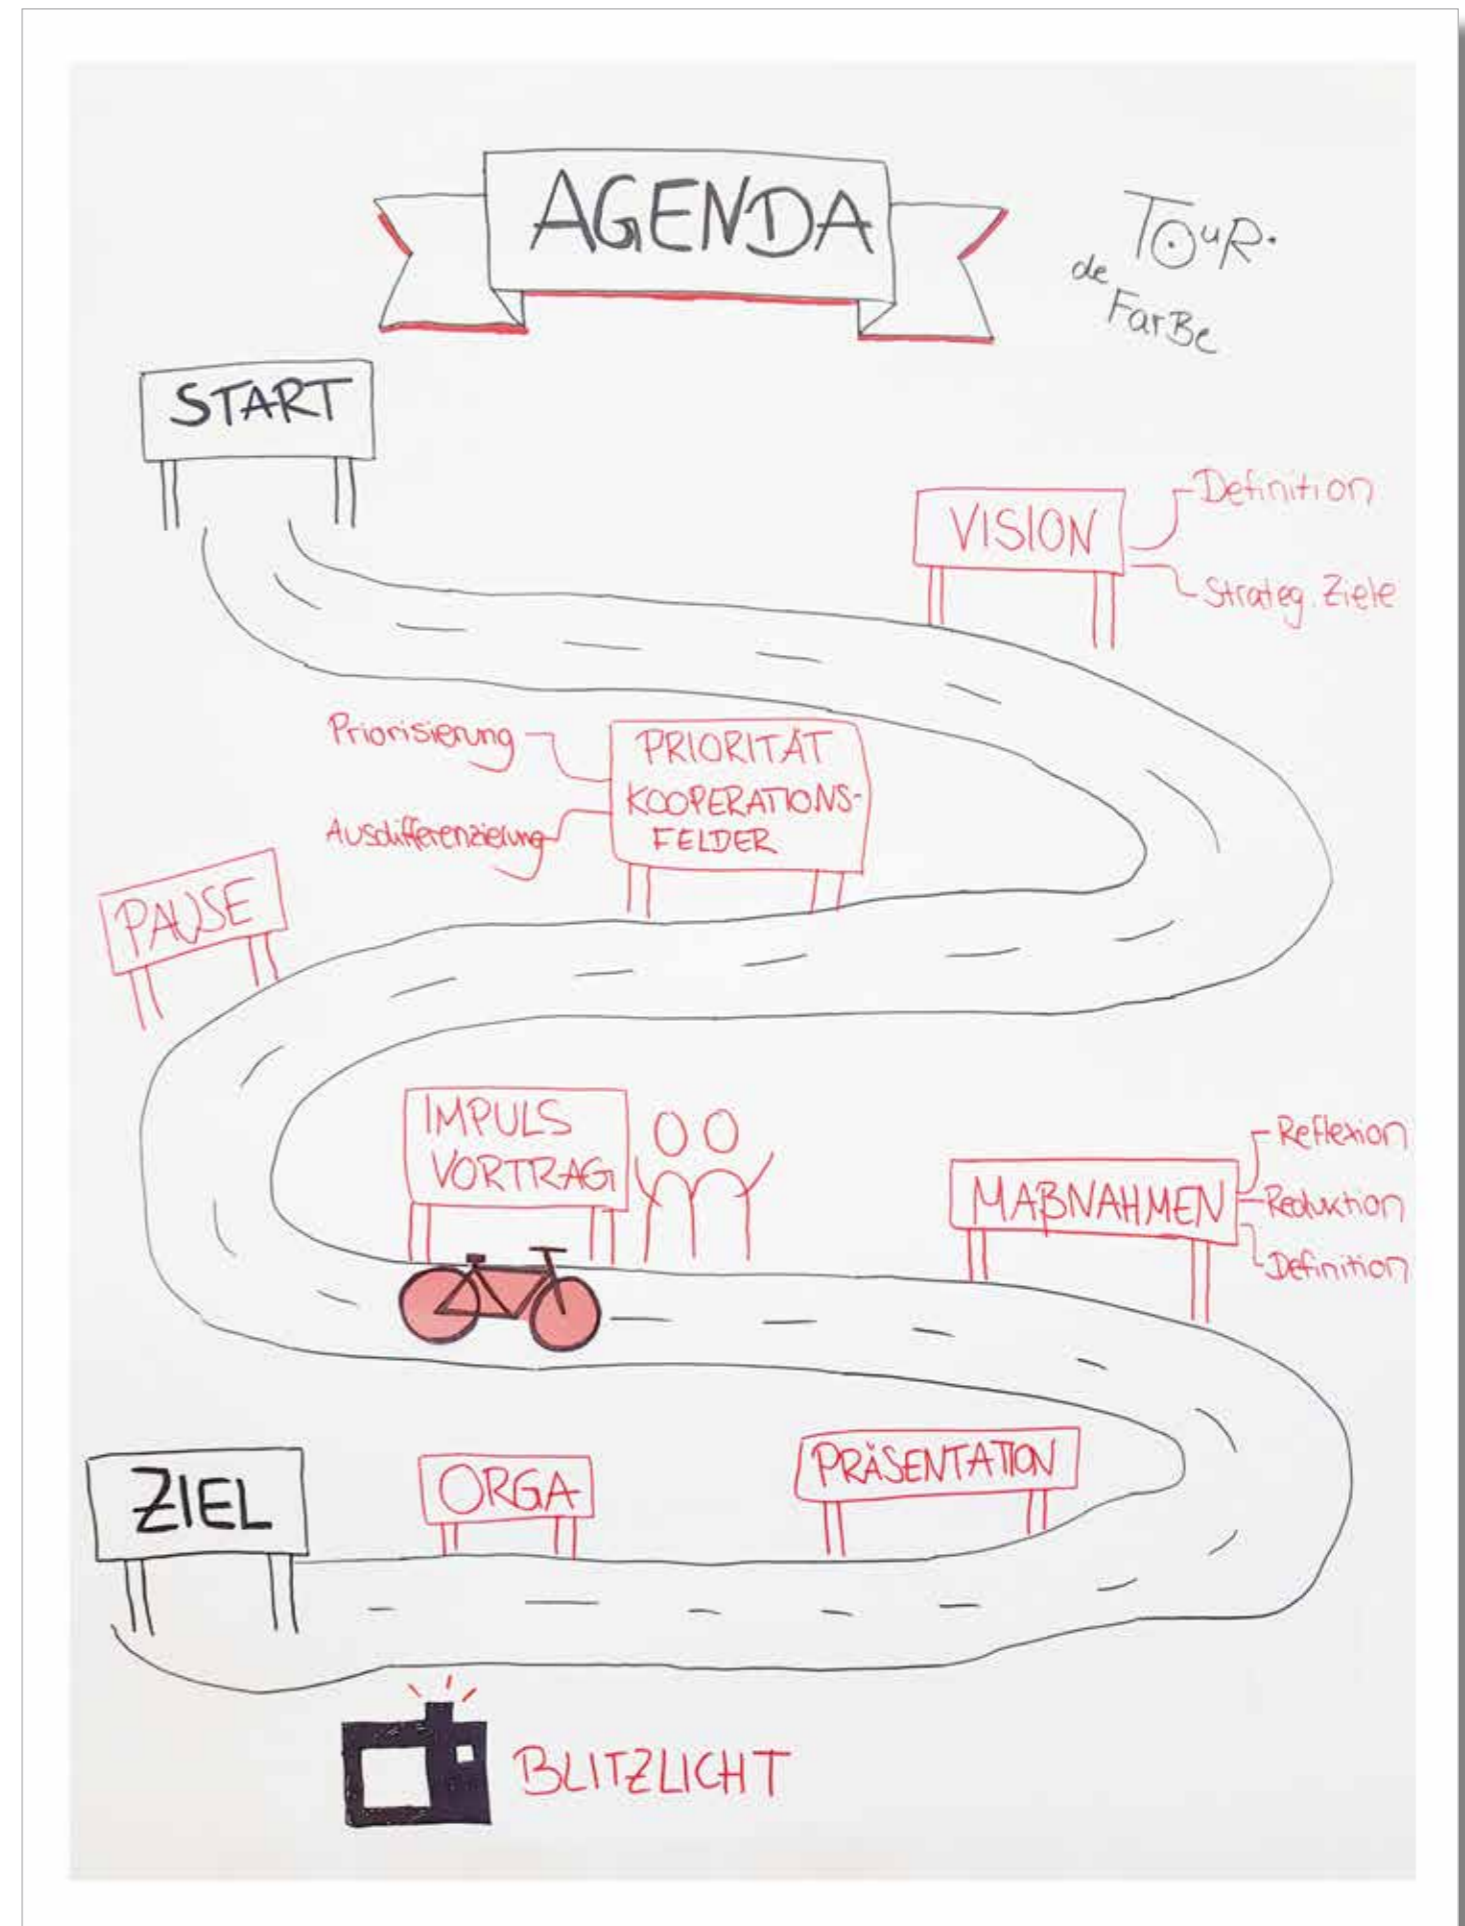 AGENDA
TOUR.
de
FarBe
START
VISION
Definition
Strateg. Ziele
Priorisierung
Ausdifferenzierung
PRIORITÄT
KOOPERATIONS-
FELDER
PAUSE
IMPULS
VORTRAG
MAßNAHMEN
Reflexion
Reduktion
Definition
PRÄSENTATION
ORGA
ZIEL
BLITZLICHT